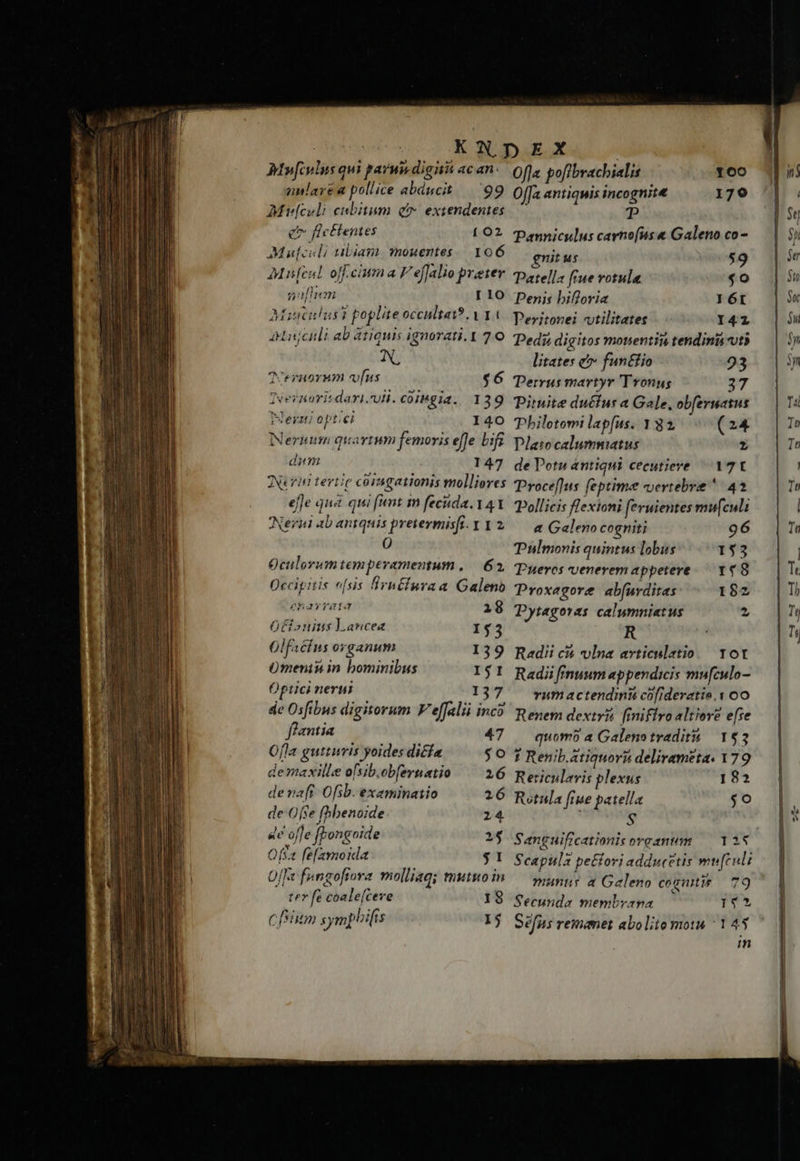 INDEX
Musculus qui parum digitū ac an-
nularē a pollice abducit 99
Musculi cubitum & extendentes
& flectentes 102
Musculi tibiam mouentes 106
Muscul. officium a Vessalio preter
missum 110
Musculus ī poplite occultat⁹. 111
Musculi ab ātiquis ignorati. 170
N.
Neruorum vsus 56
Neruoris dari. vii. cōiugia. 139
Nerui optici 140
Neruum quartum femoris esse bifi
dum 147
Nerui tertie cōiugationis molliores
esse quā qui sunt in secūda. 141
Nerui ab antquis pretermissi. 112
O
Oculorum temperamentum. 62
Occipitis ossis structura a Galeno
enarrata 28
Octonius Lancea 153
Olfactus organum 139
Omentū in hominibus 151
Optici nerui 137
de Ossibus digitorum Vessalii incō
stantia 47
Ossa gutturis yoides dicta 50
de maxille ossib. obseruatio 26
de nasi Ossib. examinatio 26
de Osse sphenoide 24
de osse spongoide 25
Ossa sesamoida 51
Ossa fungosiora molliaq; mutuo in
ter se coalescere 18
Ossium symphisis 15
Ossa postbrachialis 100
Ossa antiquis incognita 170
P
Panniculus carnosus a Galeno co-
gnitus 59
Patella siue rotula 50
Penis historia 161
Peritonei vtilitates 142
Pedū digitos mouentiū tendinū vti
litates & functio 93
Petrus martyr Tronus 37
Pituite ductus a Gale. obseruatus
Philotomi lapsus. 182 (24
Plato calumniatus 2
de Potu antiqui cecutiere 171
Processus septime vertebre 42
Pollicis flexioni seruientes musculi
a Galeno cogniti 96
Pulmonis quintus lobus 153
Pueros venerem appetere 158
Proxagore absurditas 182
Pytagoras calumniatus 2
R
Radii cū vlna articulatio 101
Radii sinuum appendicis musculo-
rum ac tendinū cōsideratio. 100
Renem dextrū sinistro altiorē esse
quomō a Galeno traditū 153
ī Renib. ātiquorū deliramēta. 179
Reticularis plexus 182
Rotula siue patella 50
S
Sanguificationis organum 125
Scapulā pectori adducētis musculi
munus a Galeno cognitū 79
Secunda membrana 152
Sēsus remanet abolito motu 145
in